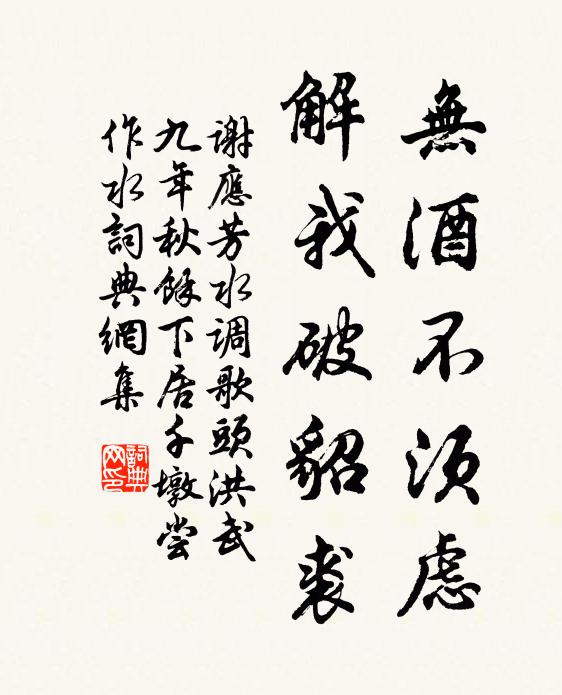 無酒不須慮
解我破貂裘
謝應芳水調歌頭洪武
九年秋餘下居千墩嘗
作水詞典網集
詞典网印